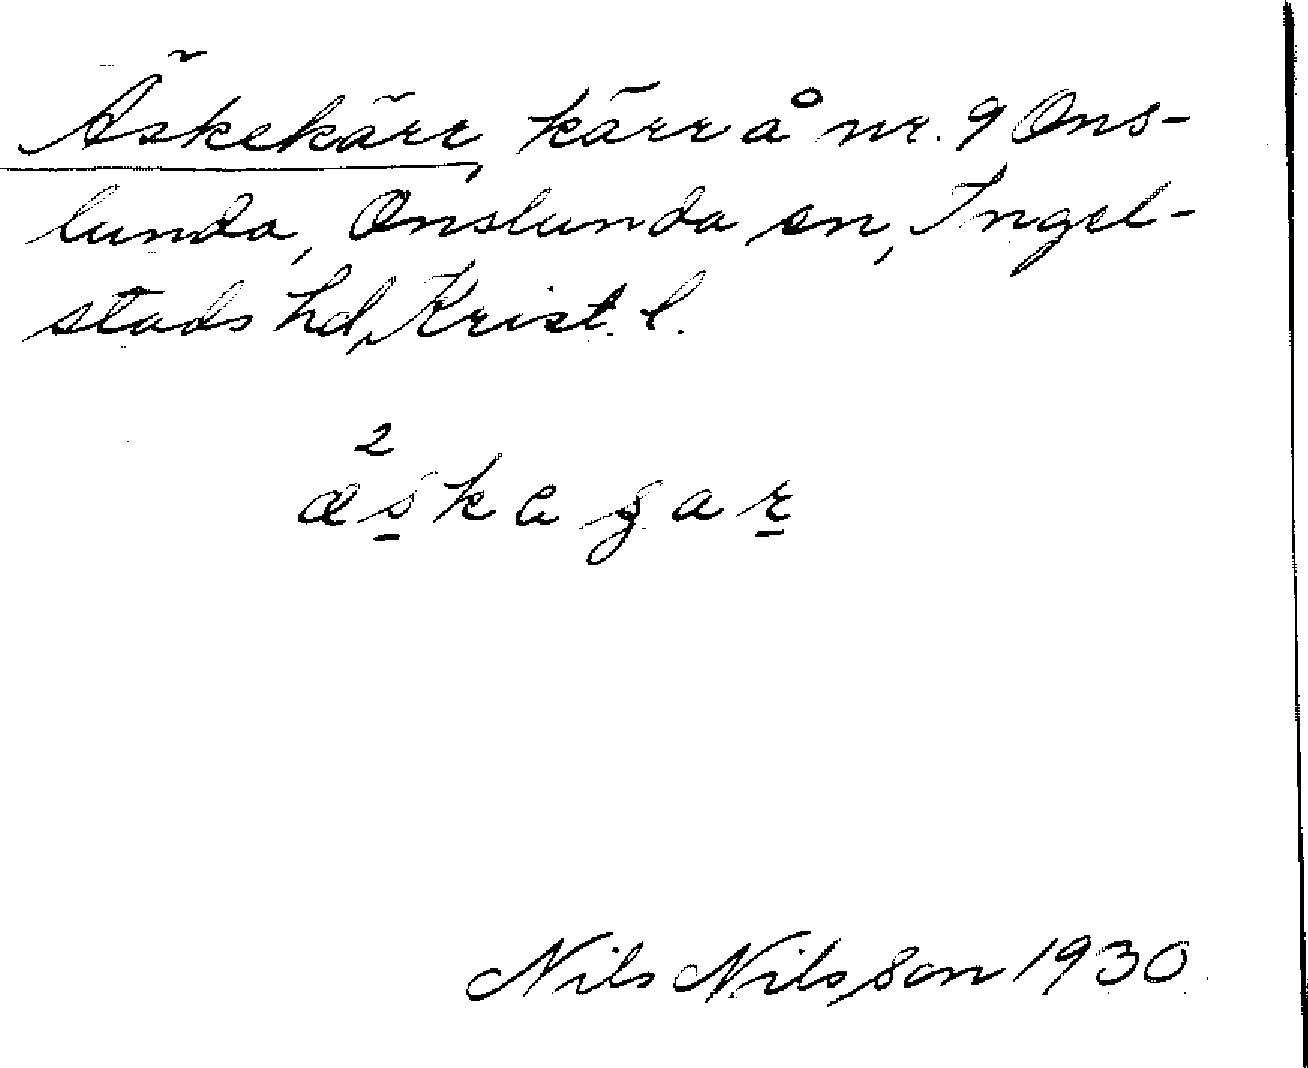 Äskekärr, kärr å nr. 9 Ons-
lunda, Onslunda sn, Ingel-
stads hd, Krist. l.
2
æskagar
Nils Nilsson 1930